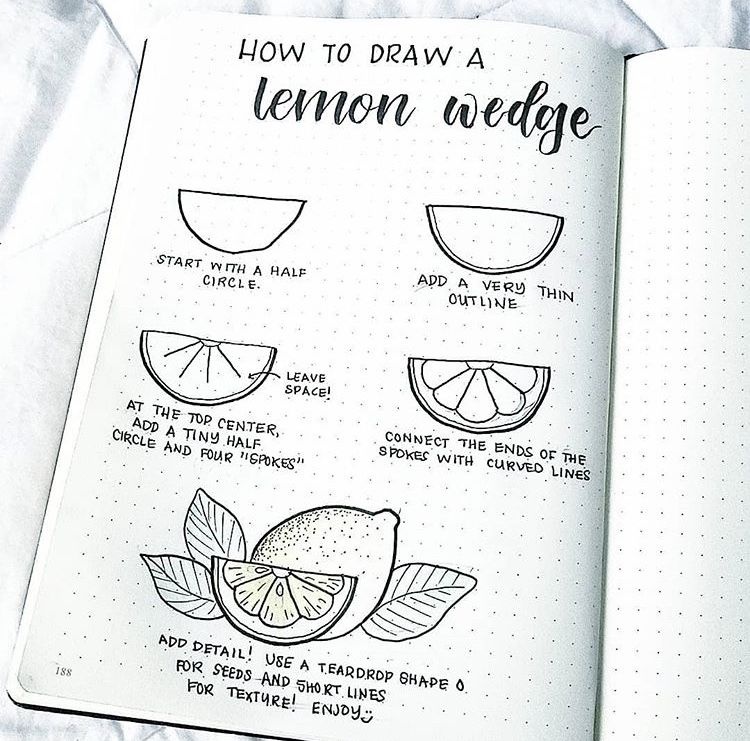 HOW TO DRAW A
lemon wedge
START WITH A HALF
CIRCLE.
ADD A VERY THIN
OUTLINE
LEAVE
SPACE!
AT THE TOP CENTER,
ADD A TINY HALF
CIRCLE AND FOUR "SPOKES"
CONNECT THE ENDS OF THE
SPOKES WITH CURVED LINES
ADD DETAIL! USE A TEARDROP SHAPE
FOR SEEDS AND SHORT LINES
FOR TEXTURE! ENJOY
188